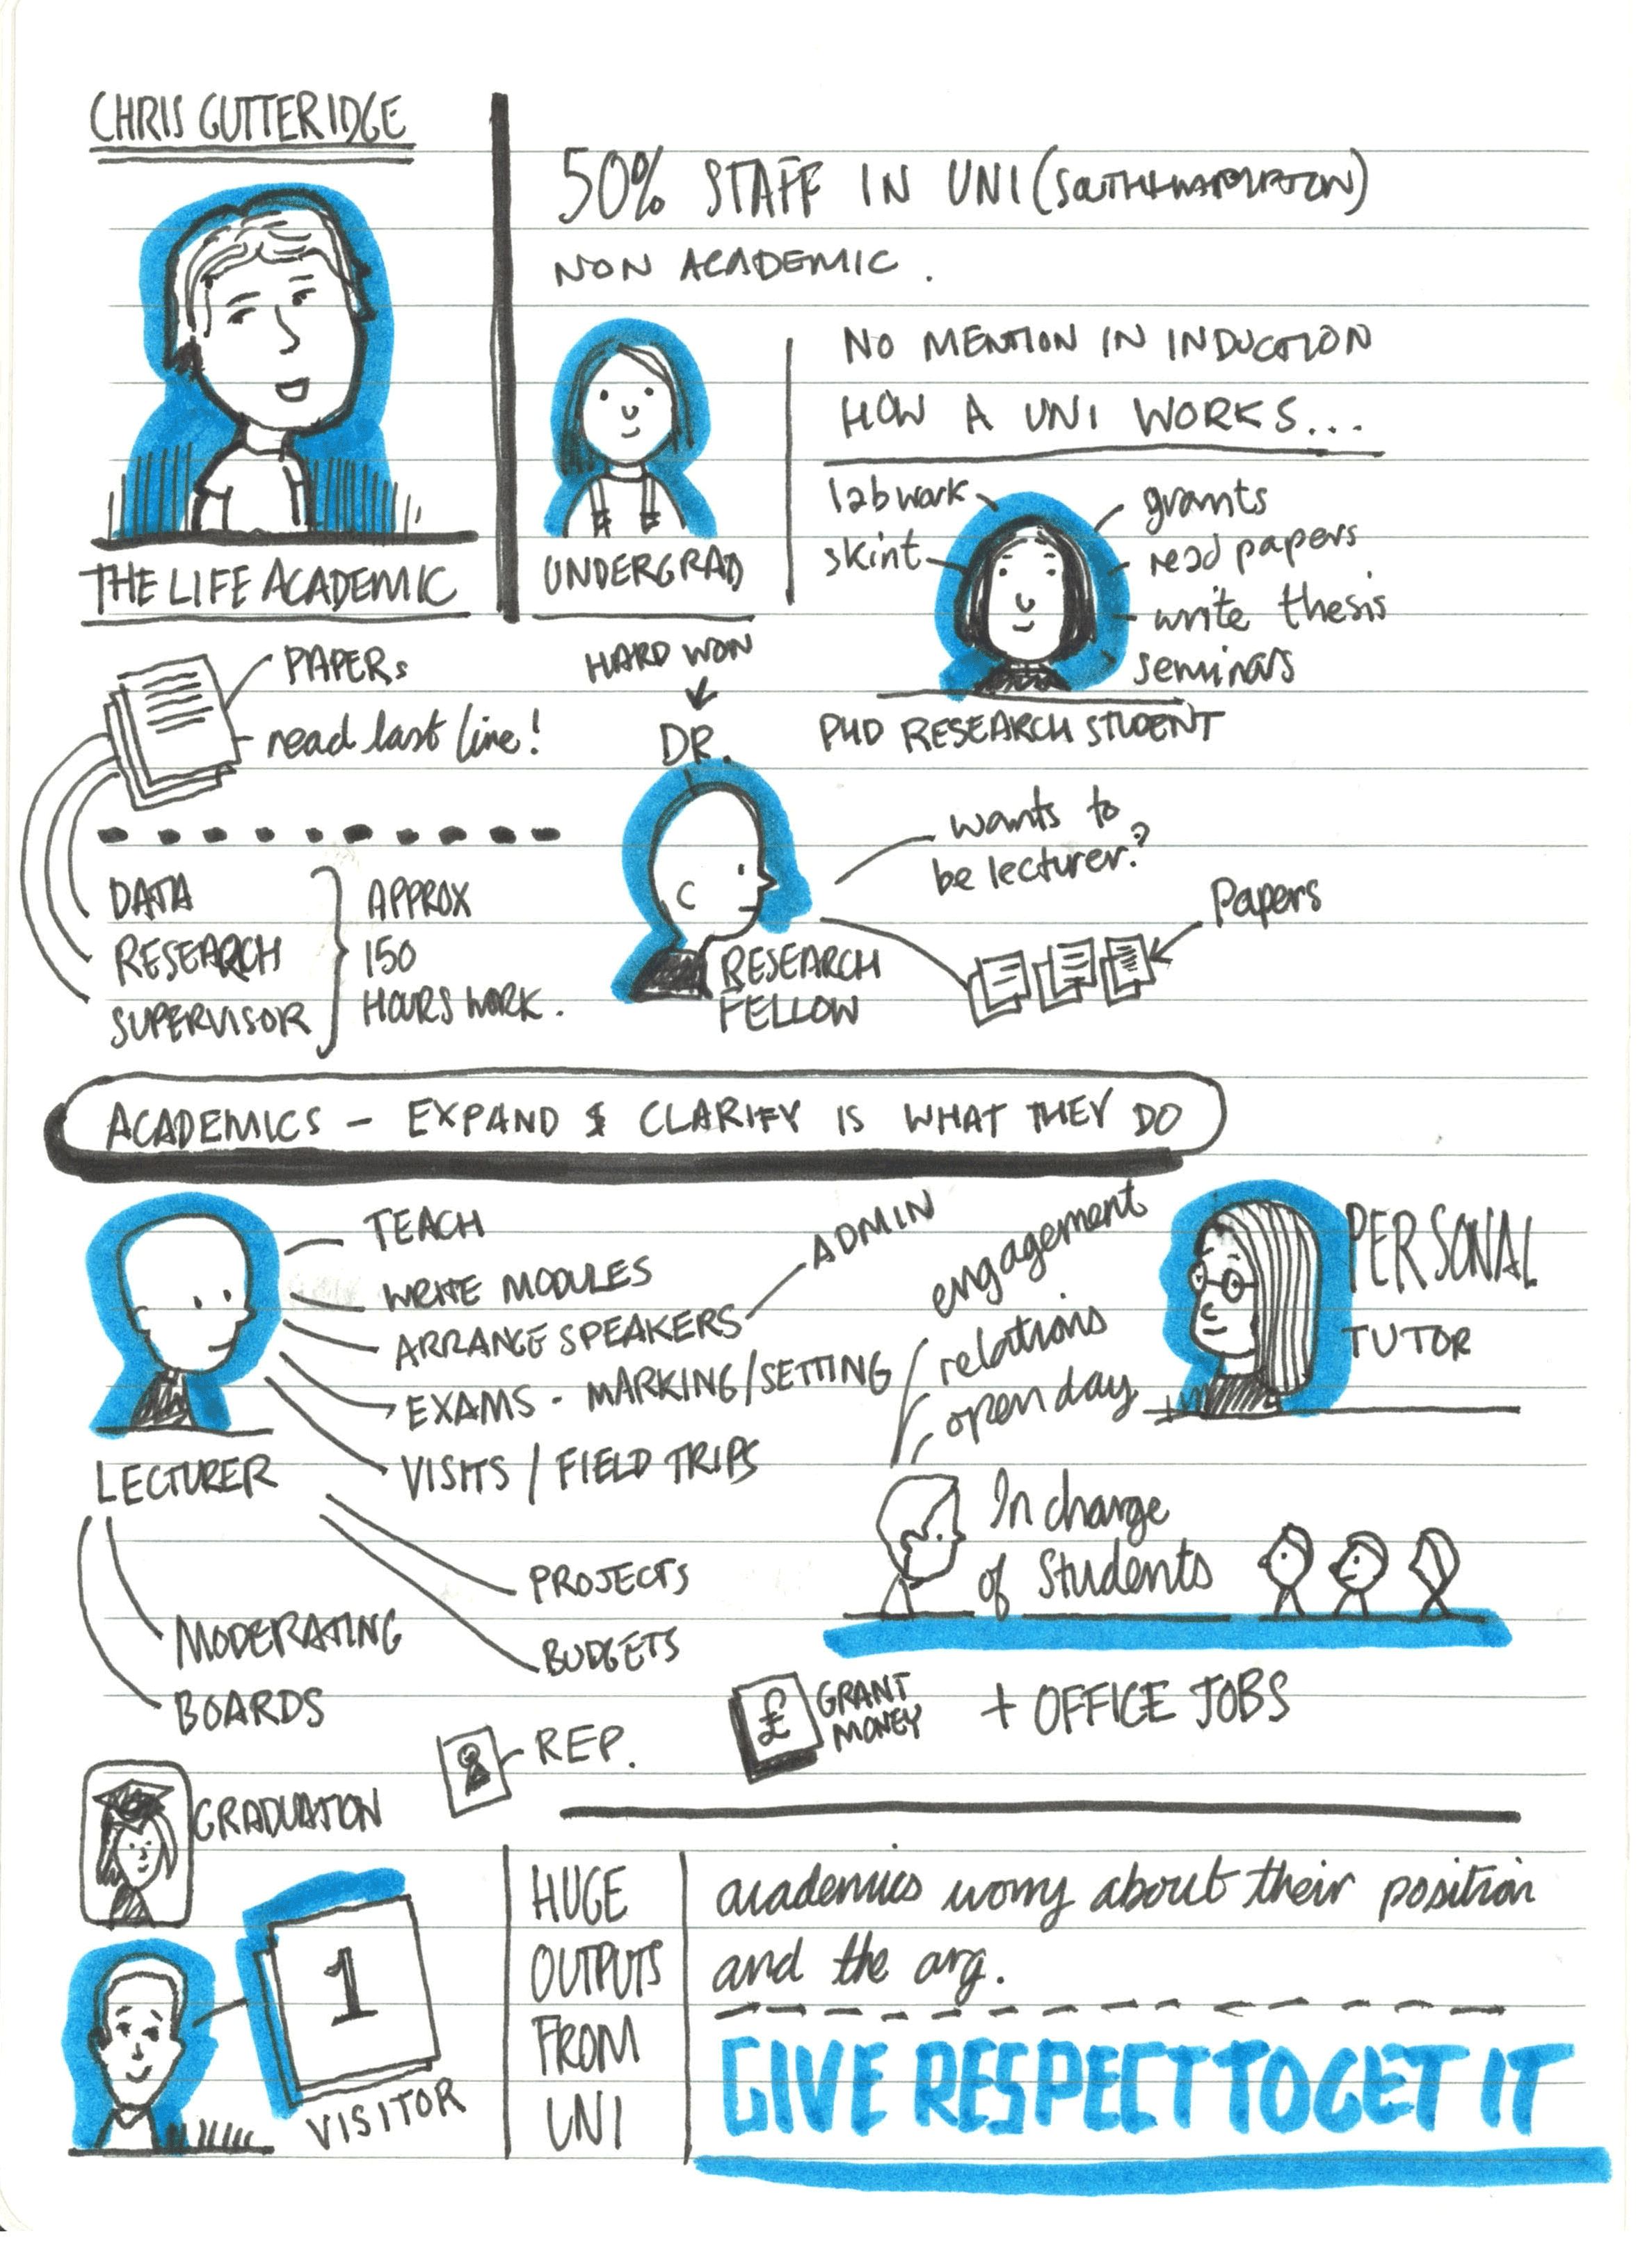 CHRIS GUTTERIDGE
THE LIFE ACADEMIC
50% STAFF IN UNI (SOUTHHAMPTON)
NON ACADEMIC.
UNDERGRAD
NO MENTION IN INDUCTION
HOW A UNI WORKS...
lab work
skint
grants
read papers
write thesis
seminars
PHD RESEARCH STUDENT
HARD WON
DR.
PAPERS
read last line!
DATA
RESEARCH
SUPERVISOR
APPROX
150
HOURS WORK.
RESEARCH
FELLOW
wants to
be lecturer?
Papers
ACADEMICS - EXPAND & CLARIFY IS WHAT THEY DO
LECTURER
TEACH
WRITE MODULES
ARRANGE SPEAKERS
ADMIN
EXAMS - MARKING/SETTING
VISITS / FIELD TRIPS
PROJECTS
BUDGETS
MODERATING
BOARDS
engagement
relations
open day
PERSONAL
TUTOR
In charge
of Students
REP.
£
GRANT
MONEY
+ OFFICE JOBS
GRADUATION
1
VISITOR
HUGE
OUTPUTS
FROM
UNI
academics worry about their position
and the org.
GIVE RESPECT TO GET IT